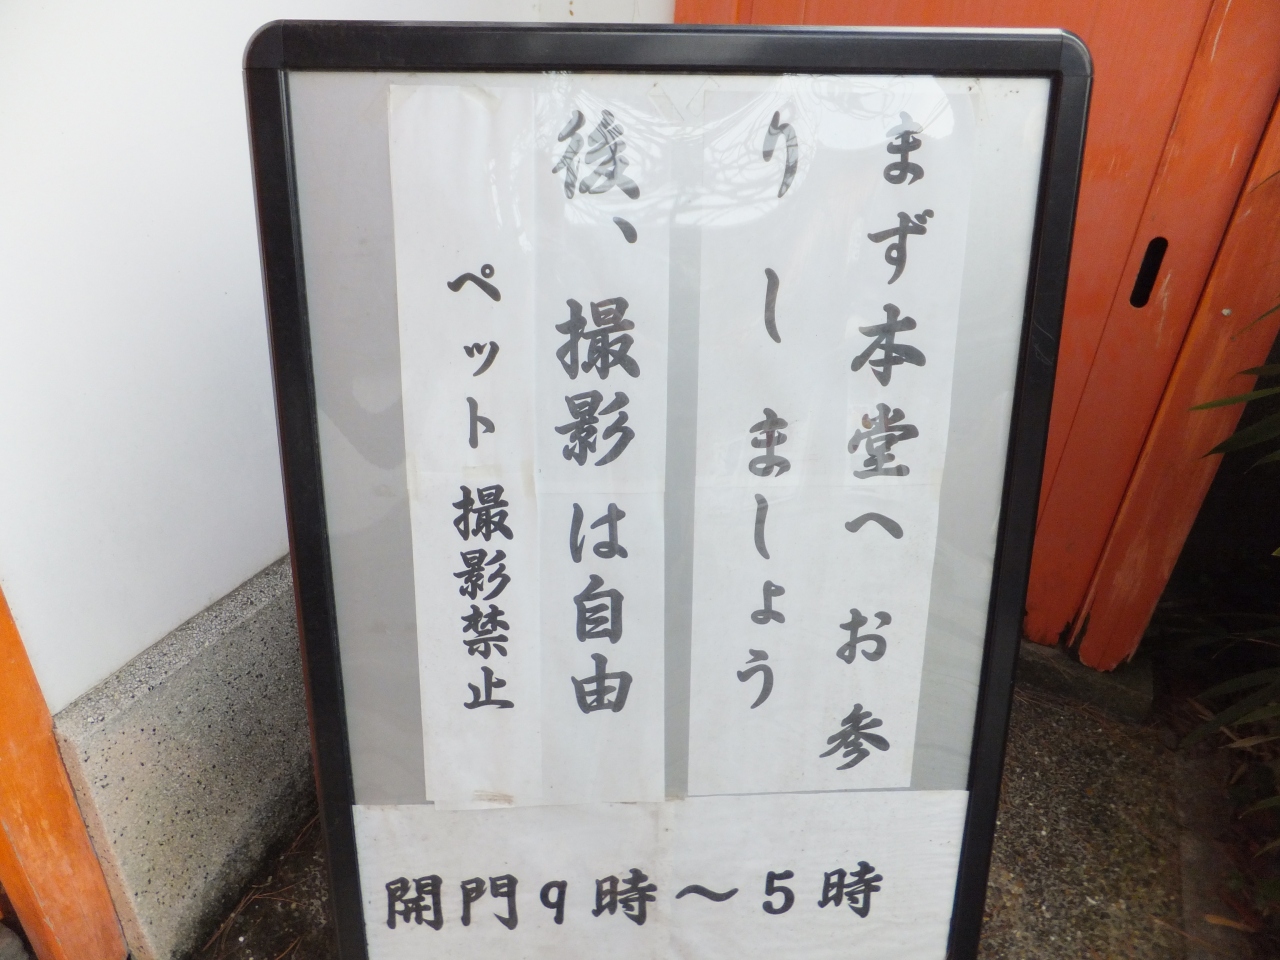 まず本堂へお参
りしましょう
後、撮影は自由
ペット撮影禁止
開門9時～5時